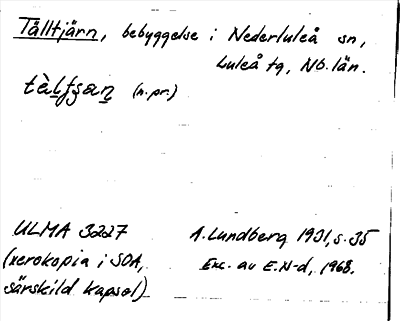 Tälltjärn, bebyggelse i Nederluleå sn,
Luleå tg, Nb. län.
(n.pr.)
ULMA 3227
A. Lundberg 1931, s. 35
(xerokopia i SOA,
Exc. av E.N-d, 1968.
särskild kapsel)